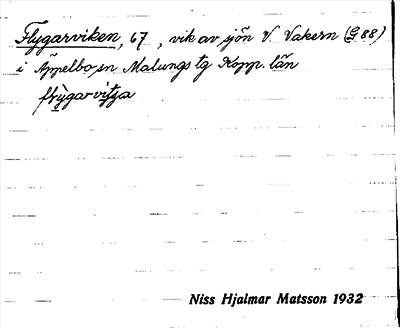 Flygarviken, 67, vik av sjön V. Vakern (G 88)
i Äppelbo sn Malungs tg Kopp. län
flỳgarvitja
Niss Hjalmar Matsson 1932